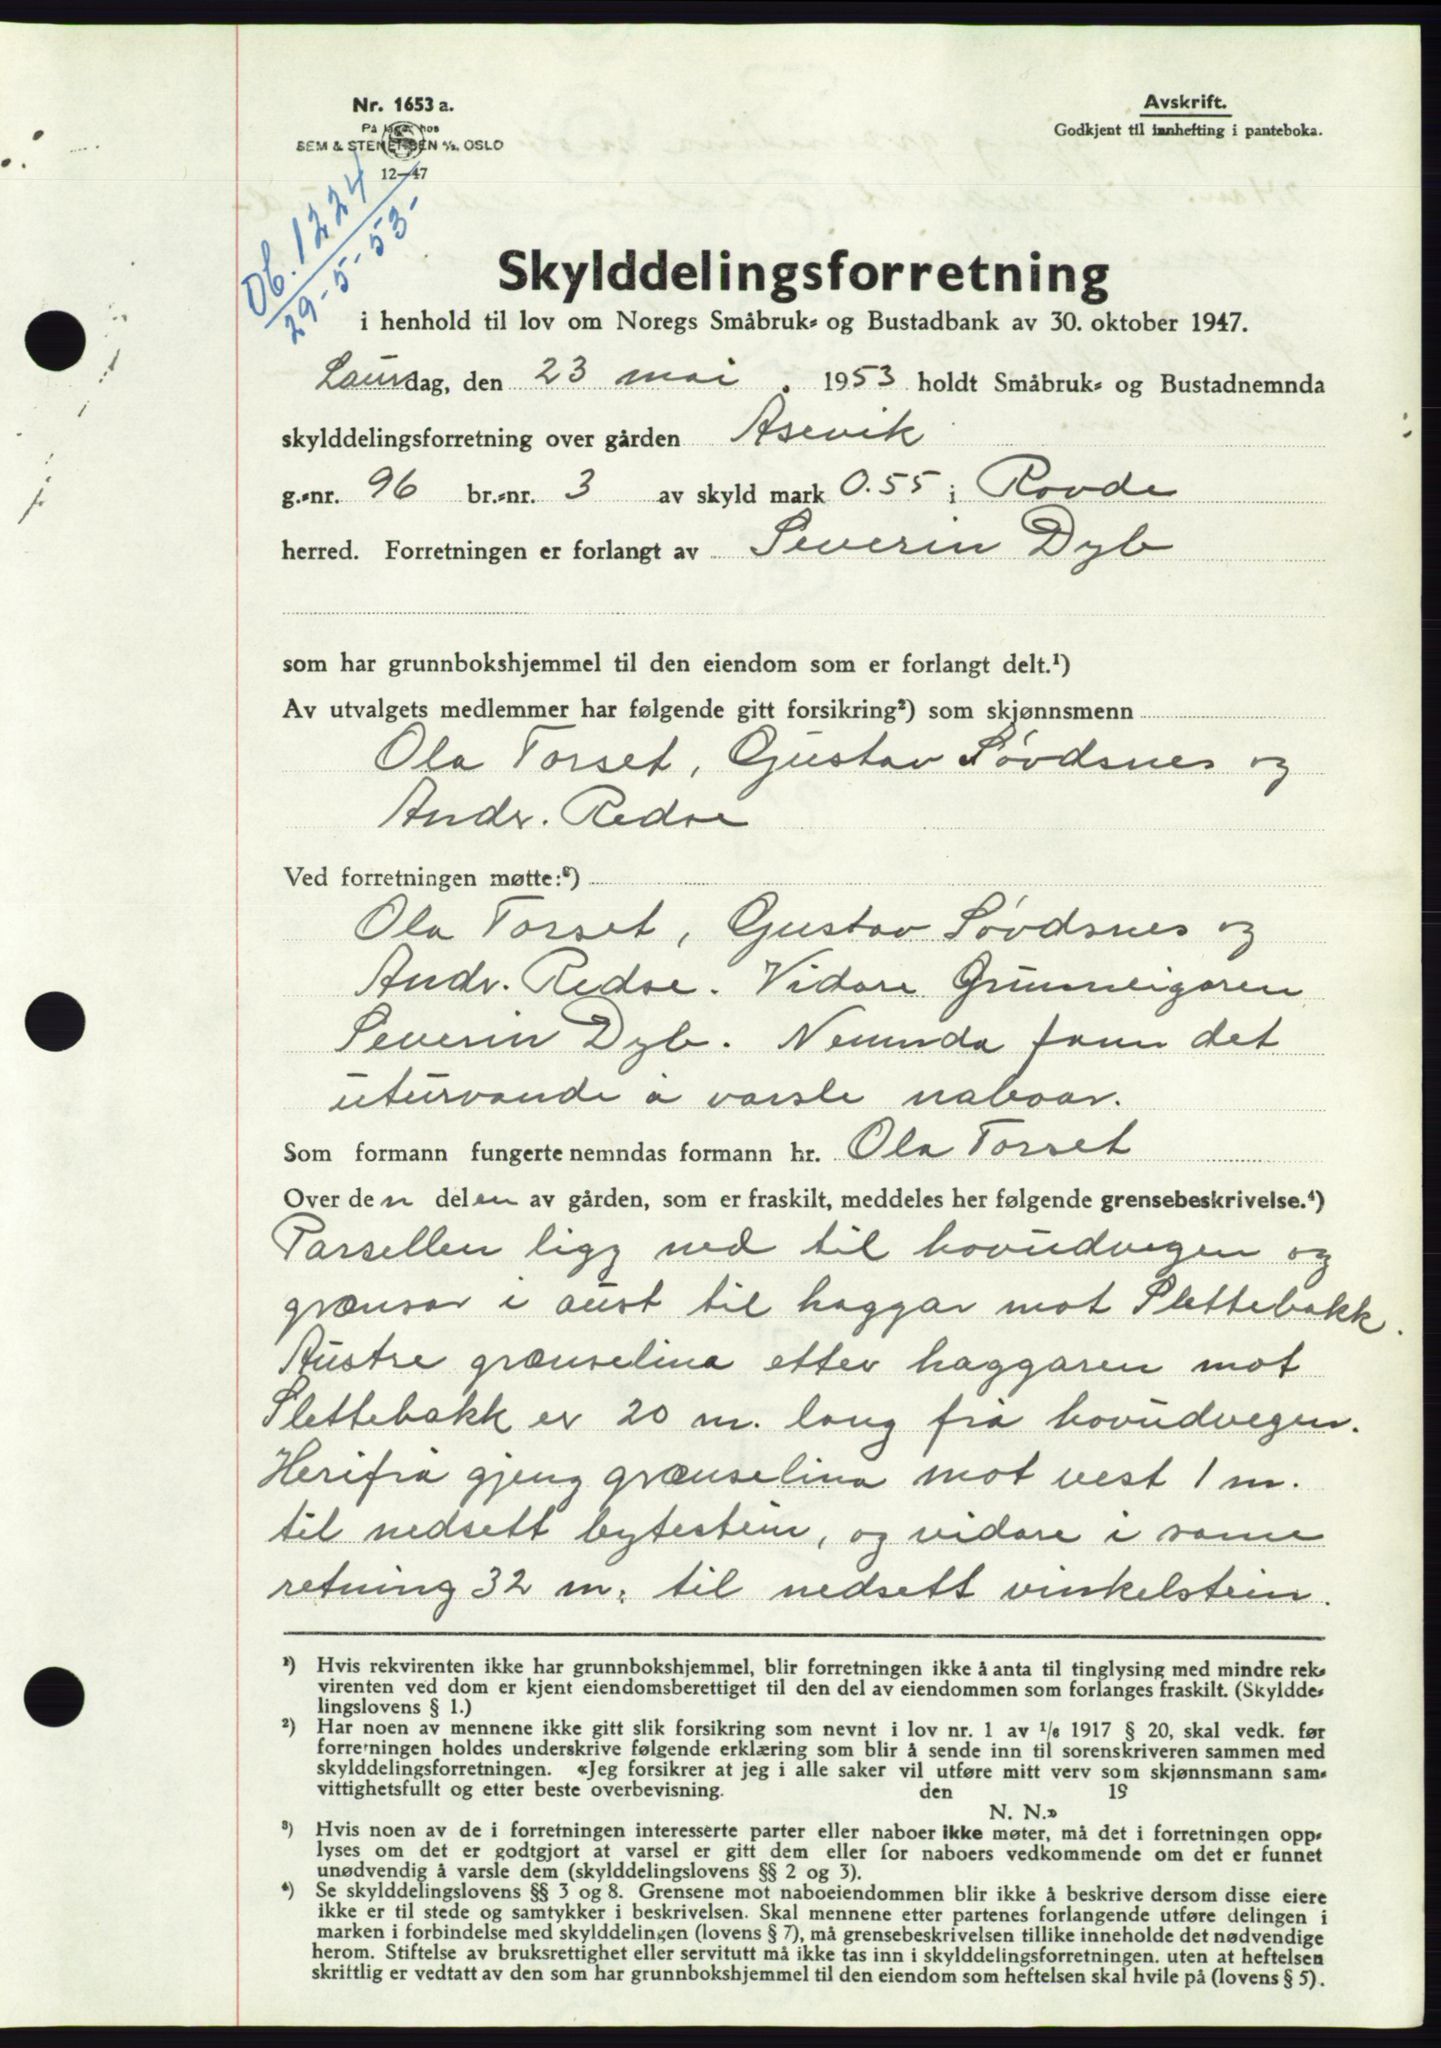 Nr. 1653 a.
På lager hos
SEM & STENERSEN A/S. OSLO
12—47
Avskrift.
Godkjent til innhefting i panteboka.
Ob. 1224
29-5-53-
Skylddelingsforretning
i henhold til lov om Noregs Småbruk- og Bustadbank av 30. oktober 1947.
Laurdag, den 23 mai. 1953 holdt Småbruk- og Bustadnemnda
skylddelingsforretning over gården Åsevik
g.-nr. 96 br.-nr. 3 av skyld mark 0.55 i Rovde
herred. Forretningen er forlangt av Severin Dyb
som har grunnbokshjemmel til den eiendom som er forlangt delt.¹)
Av utvalgets medlemmer har følgende gitt forsikring²) som skjønnsmenn
Ola Torset, Gustav Søvdsnes og
Andr. Redse
Ved forretningen møtte:³)
Ola Torset, Gustav Søvdsnes og
Andr. Redse. Vidare Grunneigaren
Severin Dyb. Nemnda fann det
uturvande å varsle naboar.
Som formann fungerte nemndas formann hr. Ola Torset
Over den delen av gården, som er fraskilt, meddeles her følgende grensebeskrivelse.⁴)
Parsellen ligg ned til hovudvegen og
grænsar i aust til haggar mot Slettebakk.
Austre grænselina etter haggaren mot
Slettebakk er 20 m. lang frå hovudvegen.
Herifrå gjeng grænselina mot vest 1 m.
til nedsett bytestein, og vidare i same
retning 32 m. til nedsett vinkelstein.
¹) Hvis rekvirenten ikke har grunnbokshjemmel, blir forretningen ikke å anta til tinglysing med mindre rek-
virenten ved dom er kjent eiendomsberettiget til den del av eiendommen som forlanges fraskilt. (Skyldde-
lingslovens § 1.)
²) Har noen av mennene ikke gitt slik forsikring som nevnt i lov nr. 1 av 1/6 1917 § 20, skal vedk. før
forretningen holdes underskrive følgende erklæring som blir å sende inn til sorenskriveren sammen med
skylddelingsforretningen. «Jeg forsikrer at jeg i alle saker vil utføre mitt verv som skjønnsmann sam-
vittighetsfullt og etter beste overbevisning. den 19
N. N.»
³) Hvis noen av de i forretningen interesserte parter eller naboer ikke møter, må det i forretningen opp-
lyses om det er godtgjort at varsel er gitt dem eller for naboers vedkommende om det er funnet
unødvendig å varsle dem (skylddelingslovens §§ 2 og 3).
⁴) Se skylddelingslovens §§ 3 og 8. Grensene mot naboeiendommen blir ikke å beskrive dersom disse eiere
ikke er til stede og samtykker i beskrivelsen. Skal mennene etter partenes forlangende utføre delingen i
marken i forbindelse med skylddelingen (lovens § 7), må grensebeskrivelsen tillike inneholde det nødvendige
herom. Stiftelse av bruksrettighet eller servitutt må ikke tas inn i skylddelingsforretningen. uten at heftelsen
skriftlig er vedtatt av den som har grunnbokshjemmel til den eiendom som heftelsen skal hvile på (lovens § 5).